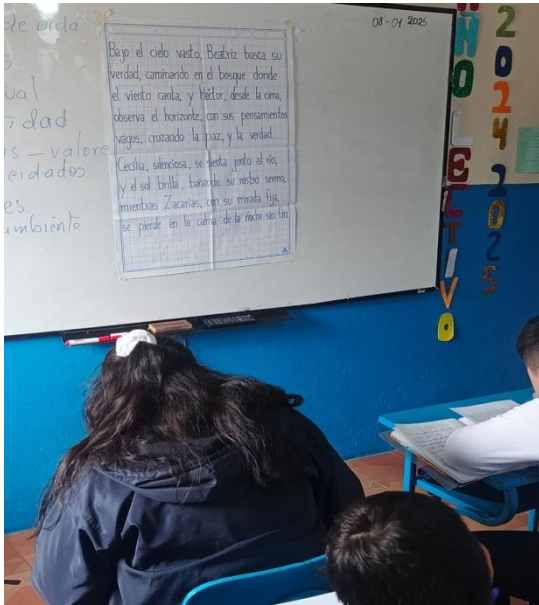 de vida
ual
idad
s - valore
cidados
es.
ambiente
Bajo el cielo vasto, Beatriz busca su
verdad, caminando en el bosque donde
el viento canta, y Héctor, desde la cima,
observa el horizonte, con sus pensamientos
vagos, cruzando la paz, y la verdad.
Cecilia, silenciosa, se sienta junto al río,
y el sol brilla, bañando su rostro sereno,
mientras Zacarías, con su mirada fija,
se pierde en la calma de la noche sin fin.
08-01-2025
ÑO LECTIVO
2024 2025